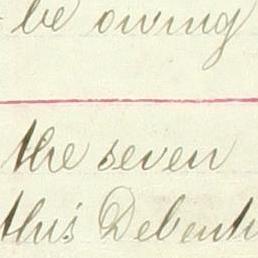 be owing
the seven
this Debentu